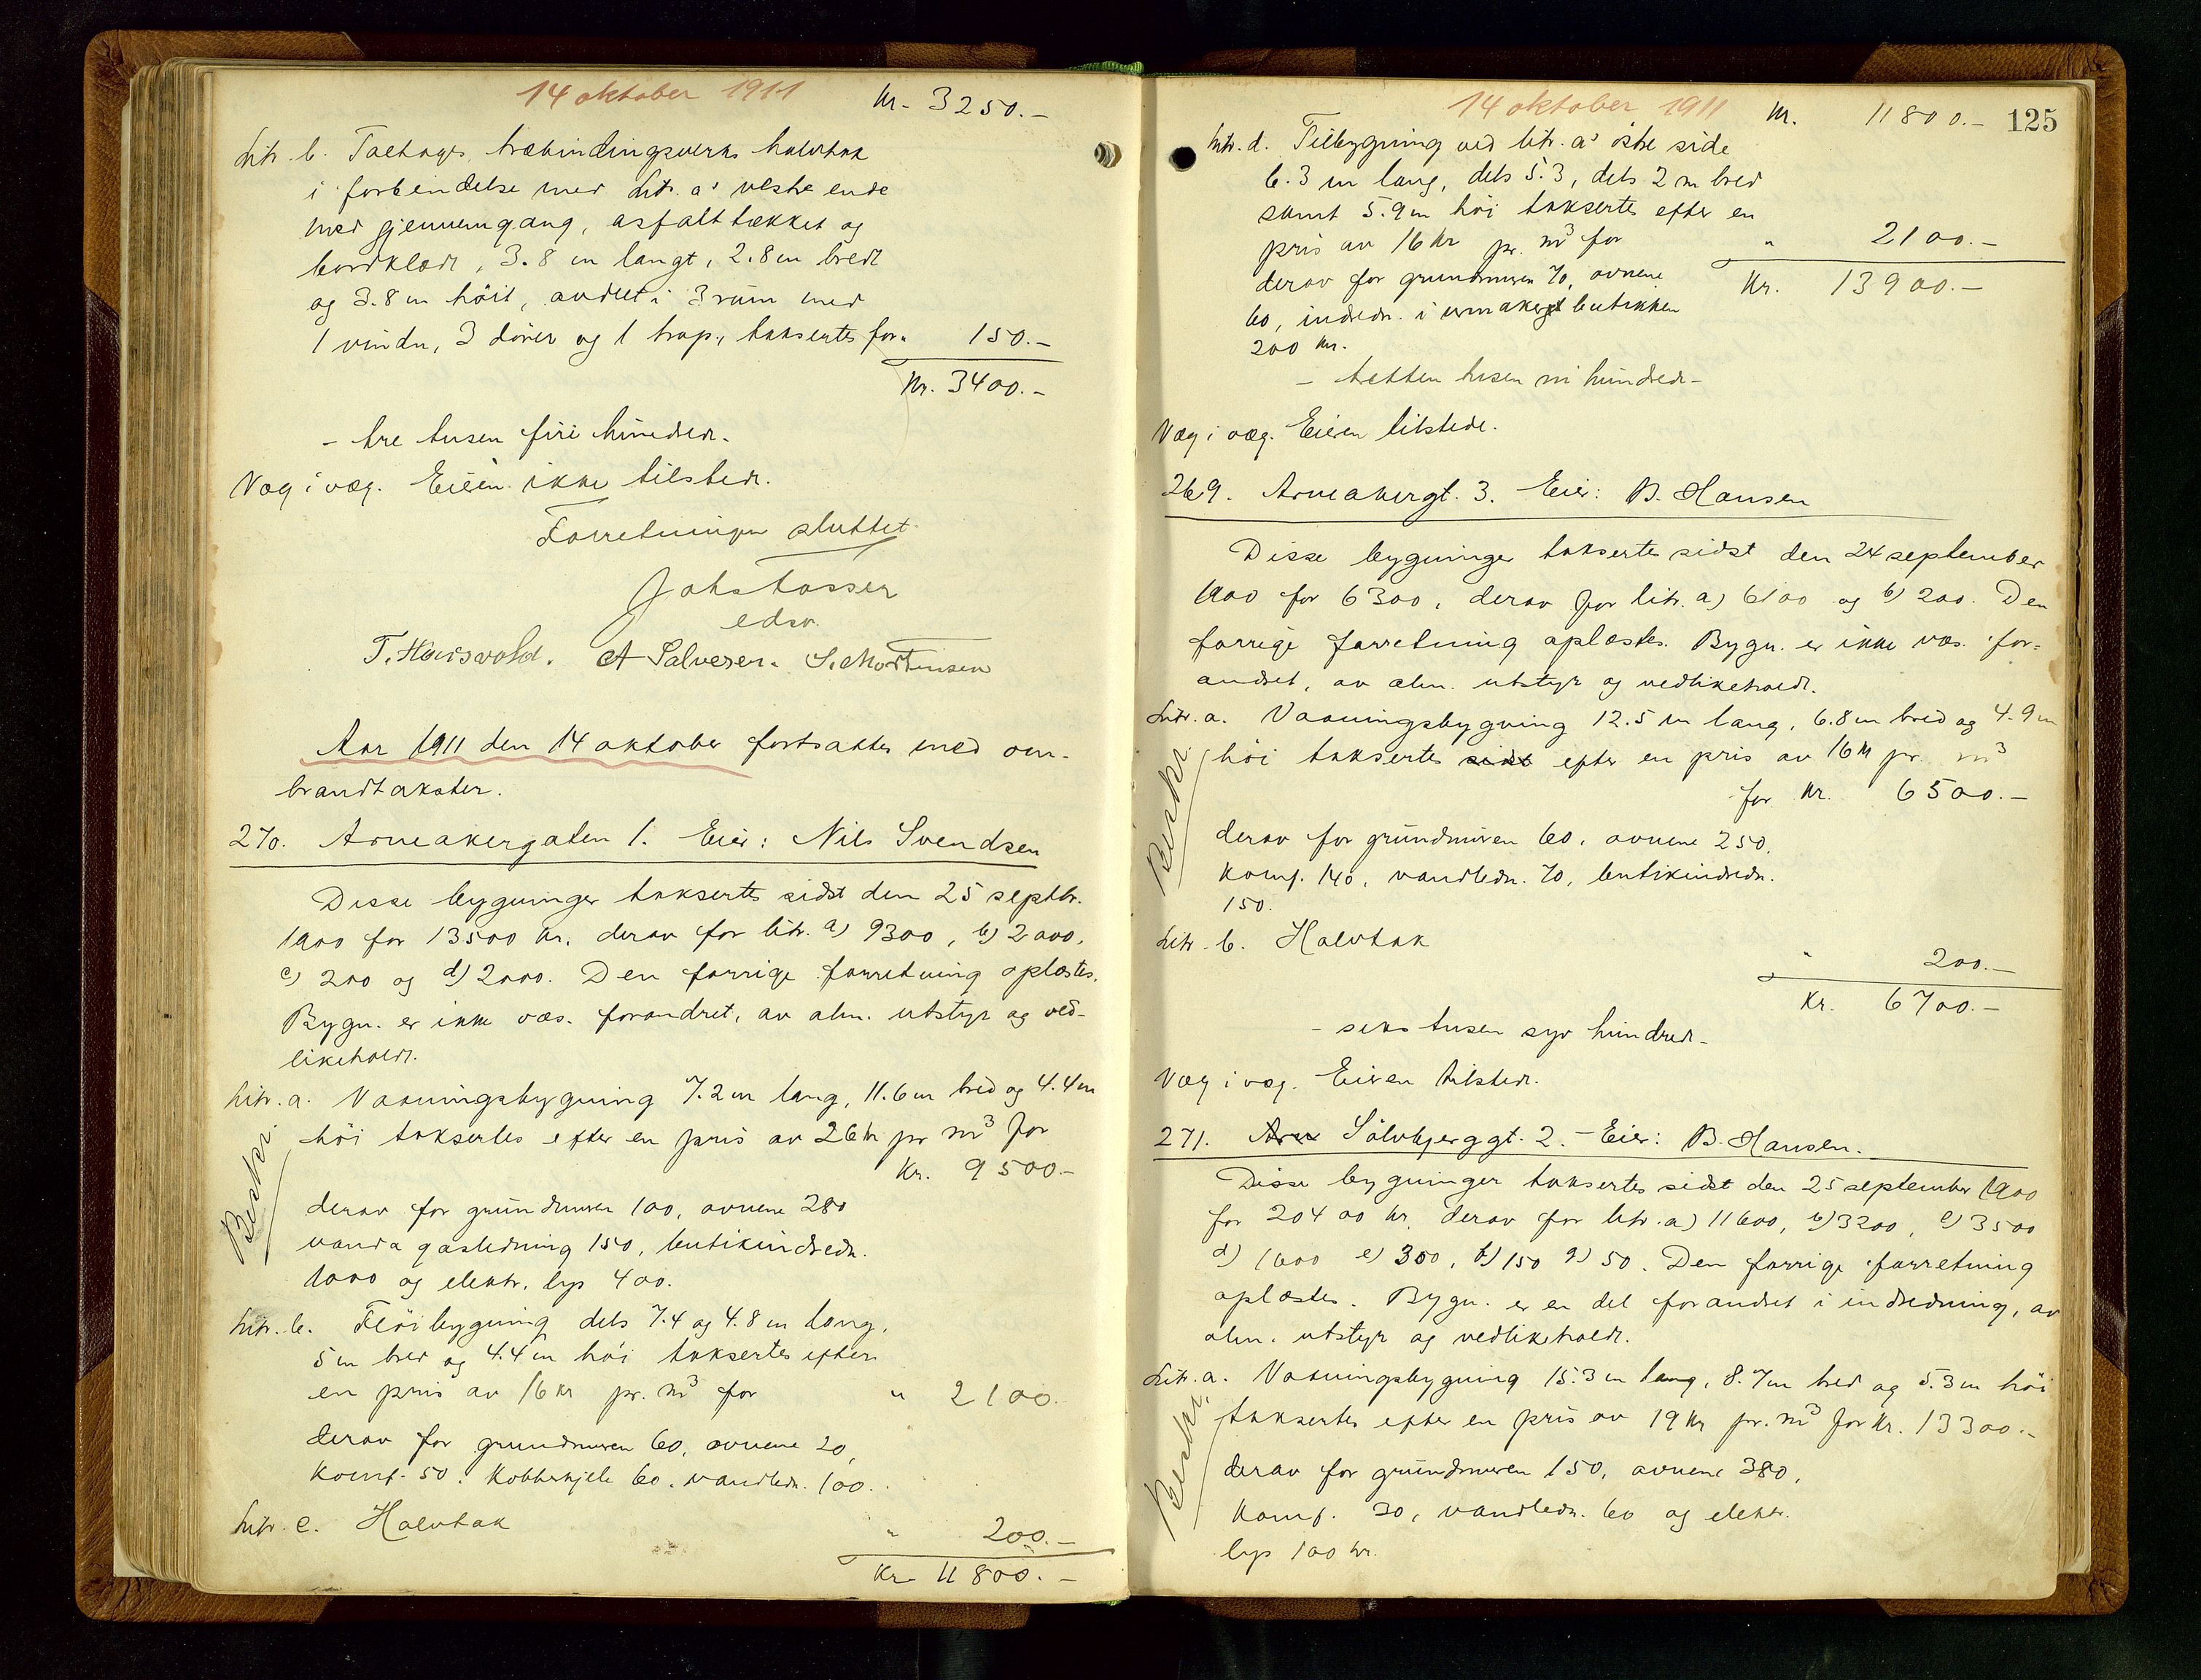 14 oktober 1911
Kr. 3250.-
Litr. b. Toetages træbindingsverks halvtak
i forbindelse med Litr. a's vestre ende
med gjennemgang, asfalttækket og
bordklædt, 3.8 m langt, 2.8 m bredt
og 3.8 m höit, avdelt i 3 rum med
1 vindu, 3 dörer og 1 trap., taksertes for " 150.-
Kr. 3400.-
- tre tusen fire hundrede.
Væg i væg. Eieren ikke tilstede.
Forretningen sluttet
edsv.
A Salvesen. S. Mortensen
Aar 1911 den 14 oktober fortsattes med om-
brandtakster.
270. Arneakergaten 1. Eier: Nils Svendsen
Disse bygninger taksertes sidst den 25 septbr.
1900 for 13500 kr. derav for litr. a) 9300, b) 2000,
c) 200 og d) 2000. Den forrige forretning oplæstes.
Bygn. er ikke væs. forandret, av alm. utstyr og ved-
likeholdt.
Litr. a. Vaaningsbygning 7.2 m lang, 11.6 m bred og 4.4 m
höi taksertes efter en pris av 26 kr pr m³ for
Kr. 9500.-
derav for grundmuren 100, ovnene 280
vand a gasledning 150, butikindredn.
1000 og elektr. lys 400.
Beskr.
Litr. b. Flöibygning dels 7.4 og 4.8 m lang,
5 m bred og 4.4 m höi taksertes efter
en pris av 16 kr pr. m³ for " 2100.
derav for grundmuren 60, ovnene 20,
Komf. 50. Kobberkjele 60. vandledn. 100.
Litr. c. Halvtak " 200.-
Kr. 11800.-
14 oktober 1911
Kr. 11800.- 125
Litr. d. Tilbygning ved litr. a's östre side
6.3 m lang, dels 5.3, dels 2 m bred
samt 5.9 m höi taksertes efter en
pris av 16 kr pr. m³ for " 2100.-
derav for grundmuren 70, ovnene Kr. 13900.-
60, indredn. i urmaker butikken
200 kr.
- tretten tusen ni hundrede-
Væg i væg. Eieren tilstede.
269. Arneakergt. 3. Eier: B. Hansen
Disse bygninger taksertes sidst den 24 september
1900 for 6300, derav for litr. a) 6100 og b) 200. Den
forrige forretning oplæstes. Bygn. er ikke væs. for=
andret, av alm. utstyr og vedlikeholdt.
Litr. a. Vaaningsbygning 12.5 m lang, 6.8 m bred og 4.9 m
höi taksertes sidst efter en pris av 16 kr pr. m³
for Kr. 6500.-
derav for grundmuren 60, ovnene 250,
Komf. 140, vandledn. 70, butikindredn.
150.
Beskr.
Litr. b. Halvtak " 200.-
Kr. 6700.-
- seks tusen syv hundrede-
Væg i væg. Eieren tilstede.
271. Arn Sölvbjerggt. 2. - Eier: B. Hansen.
Disse bygninger taksertes sidst den 25 september 1900
for 20400 kr. derav for litr. a) 11600, b) 3200, c) 3500
d) 1600 e) 300, f) 150 g) 50. Den forrige forretning
oplæstes. Bygn. er en del forandret i indredning, av
alm. utstyr og vedlikeholdt.
Litr. a. Vaaningsbygning 15.3 m lang, 8.7 m bred og 5.3 m höi
taksertes efter en pris av 19 kr pr. m³ for Kr. 13300.-
derav for grundmuren 150, ovnene 380,
Komf. 30, vandledn. 60 og elektr.
lys 100 kr.
Beskr.